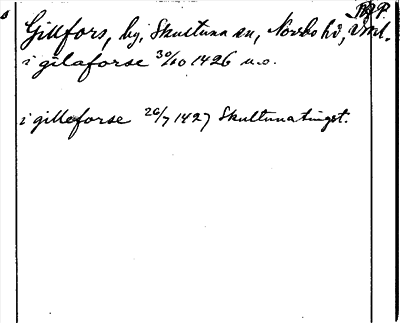 Gillfors, by, Skultuna sn, Norrbo hd, Vml.
i gilaforse 30/10 1426 u.o.
i gilleforse 26/7 1427 Skultunatinget.